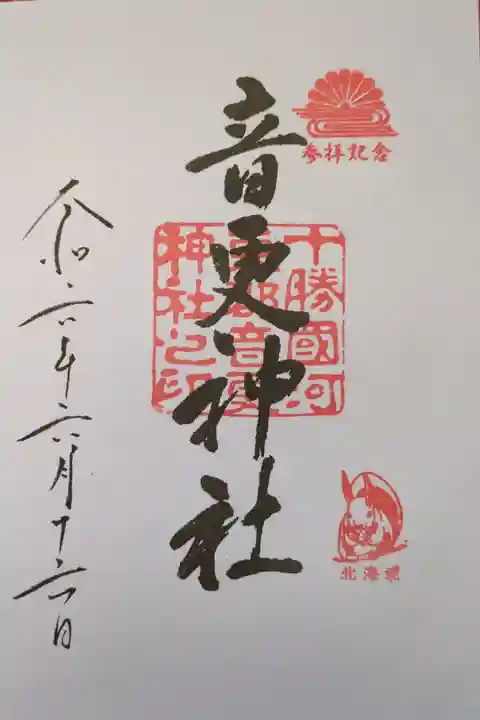 参拝記念
音更神社
十勝國河
東郡音更
神社之印
北海道
令和六年六月十六日